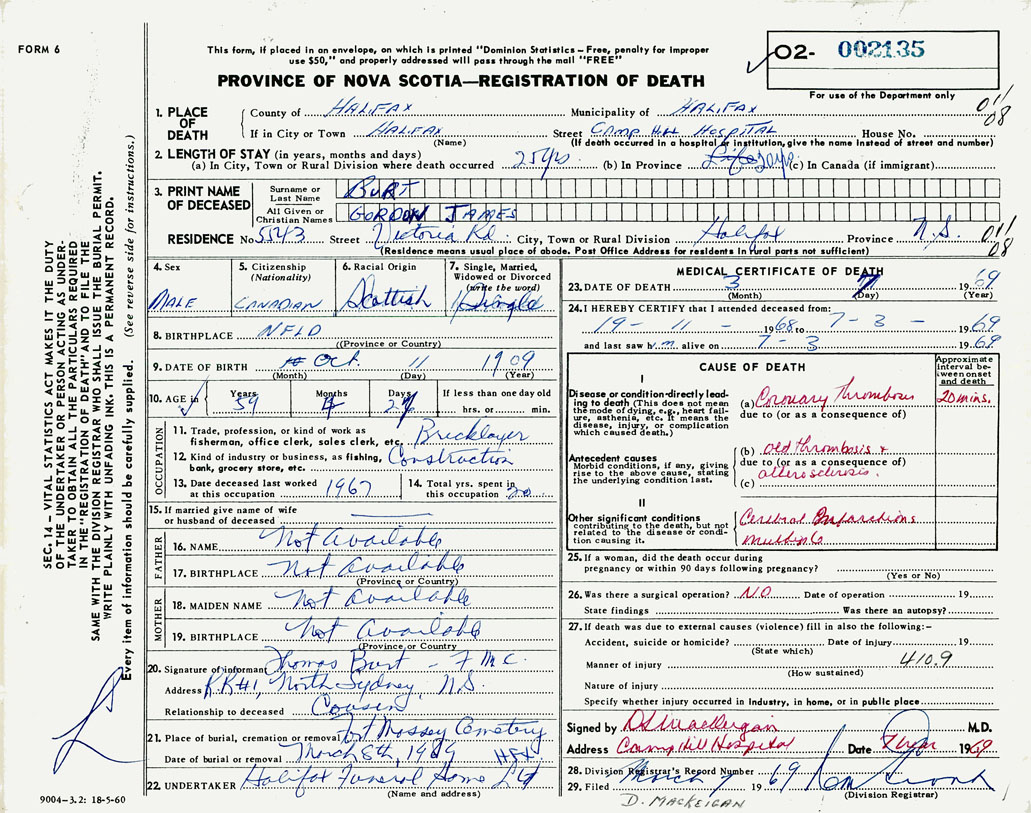 FORM 6
This form, if placed in an envelope, on which is printed "Dominion Statistics – Free, penalty for improper
use $50," and properly addressed will pass through the mail "FREE"
PROVINCE OF NOVA SCOTIA—REGISTRATION OF DEATH
O2- 002135
For use of the Department only
011/08
1. PLACE OF DEATH
County of HALIFAX Municipality of HALIFAX
If in City or Town HALIFAX Street CAMP HILL HOSPITAL House No.
(Name) (If death occurred in a hospital or institution, give the name instead of street and number)
2. LENGTH OF STAY (in years, months and days)
(a) In City, Town or Rural Division where death occurred 25 yrs (b) In Province Life (c) In Canada (if immigrant)
3. PRINT NAME OF DECEASED
Surname or Last Name BURT
All Given or Christian Names GORDON JAMES
RESIDENCE No. 5543 Street Victoria Rd. City, Town or Rural Division Halifax Province N.S. 011/08
(Residence means usual place of abode. Post Office Address for residents in rural parts not sufficient)
4. Sex MALE
5. Citizenship (Nationality) CANADIAN
6. Racial Origin Scottish
7. Single, Married, Widowed or Divorced (write the word) Single
8. BIRTHPLACE NFLD
(Province or Country)
9. DATE OF BIRTH Oct. 11 1909
(Month) (Day) (Year)
10. AGE in Years 59 Months 4 Days If less than one day old hrs. or min.
OCCUPATION
11. Trade, profession, or kind of work as
fisherman, office clerk, sales clerk, etc. Bricklayer
12. Kind of industry or business, as fishing,
bank, grocery store, etc. Construction
13. Date deceased last worked
at this occupation 1967
14. Total yrs. spent in
this occupation 20
15. If married give name of wife
or husband of deceased
FATHER
16. NAME Not Available
17. BIRTHPLACE Not Available
(Province or Country)
MOTHER
18. MAIDEN NAME Not Available
19. BIRTHPLACE Not Available
(Province or Country)
20. Signature of informant Thomas Burt – F.M.C.
Address R.R#1, North Sydney, N.S.
Relationship to deceased Cousin
21. Place of burial, cremation or removal Fort Massey Cemetery
Date of burial or removal March 8th, 1969 HFX
22. UNDERTAKER Halifax Funeral Home Ltd
(Name and address)
MEDICAL CERTIFICATE OF DEATH
23. DATE OF DEATH 3 7 1969
(Month) (Day) (Year)
24. I HEREBY CERTIFY that I attended deceased from:
19 - 11 - 1968 to 7 - 3 - 1969
and last saw him alive on 7 - 3 1969
CAUSE OF DEATH
Approximate interval between onset and death
I
Disease or condition directly leading
to death (This does not mean
the mode of dying, e.g., heart failure,
asthenia, etc. It means the
disease, injury, or complication
which caused death.)
(a) Coronary Thrombosis 20 mins.
due to (or as a consequence of)
Antecedent causes
Morbid conditions, if any, giving
rise to the above cause, stating
the underlying condition last.
(b) old thrombosis +
due to (or as a consequence of)
(c) atherosclerosis.
II
Other significant conditions
contributing to the death, but not
related to the disease or condition
causing it.
Cerebral Infarctions
multiple
25. If a woman, did the death occur during
pregnancy or within 90 days following pregnancy?
(Yes or No)
26. Was there a surgical operation? NO Date of operation 19
State findings Was there an autopsy?
27. If death was due to external causes (violence) fill in also the following:–
Accident, suicide or homicide? Date of injury 19
(State which)
Manner of injury 410.9
(How sustained)
Nature of injury
Specify whether injury occurred in industry, in home, or in public place
Signed by DS MacKeigan M.D.
Address Camp Hill Hospital Date 7 Mar 1969
28. Division Registrar's Record Number
29. Filed March 7 1969
(Division Registrar)
D. MACKEIGAN
SEC. 14 – VITAL STATISTICS ACT MAKES IT THE DUTY
OF THE UNDERTAKER OR PERSON ACTING AS UNDERTAKER
TO OBTAIN ALL THE PARTICULARS REQUIRED
IN THE "REGISTRATION OF DEATH" AND TO FILE THE
SAME WITH THE DIVISION REGISTRAR WHO SHALL ISSUE THE BURIAL PERMIT.
WRITE PLAINLY WITH UNFADING INK. THIS IS A PERMANENT RECORD.
Every item of information should be carefully supplied. (See reverse side for instructions.)
9004–3.2: 18-5-60